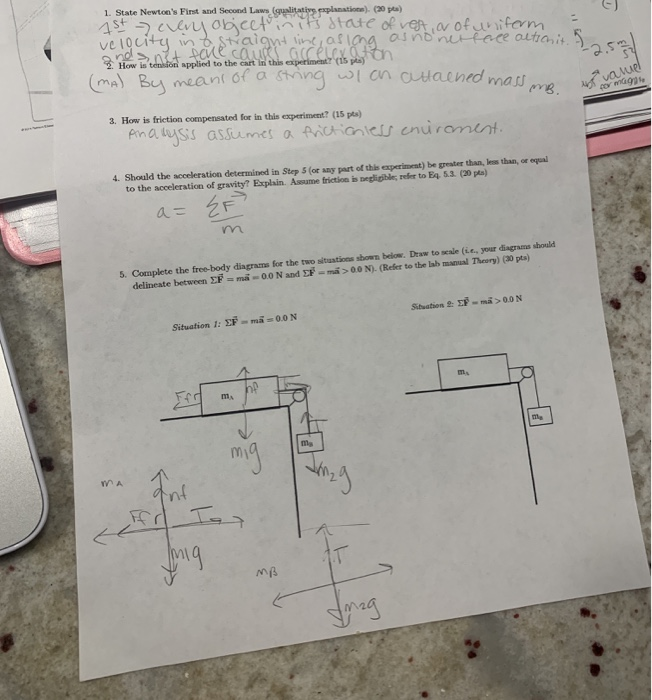 1. State Newton's First and Second Laws (qualitative explanations). (20 pts)
1st → every object in its state of rest, or of uniform
velocity in a straight line, as long as no net force act on it.
2nd → net force causes acceleration
2. How is tension applied to the cart in this experiment? (15 pts)
(mA) By means of a string w/ an attached mass mB.
3. How is friction compensated for in this experiment? (15 pts)
Analysis assumes a frictionless enviroment.
4. Should the acceleration determined in Step 5 (or any part of this experiment) be greater than, less than, or equal
to the acceleration of gravity? Explain. Assume friction is negligible; refer to Eq. 5.3. (20 pts)
a = ΣF
m
5. Complete the free-body diagrams for the two situations shown below. Draw to scale (i.e., your diagrams should
delineate between ΣF⃗ = ma⃗ = 0.0 N and ΣF⃗ = ma⃗ > 0.0 N). (Refer to the lab manual Theory) (30 pts)
Situation 1: ΣF⃗ = ma⃗ = 0.0 N
Situation 2: ΣF⃗ = ma⃗ > 0.0 N
Ffr
mA
nf
T
mB
m1g
m2g
mA
mB
mA
nf
Ffr
T
m1g
mB
T
m2g
(-)
=
-2.5 m/s²
value